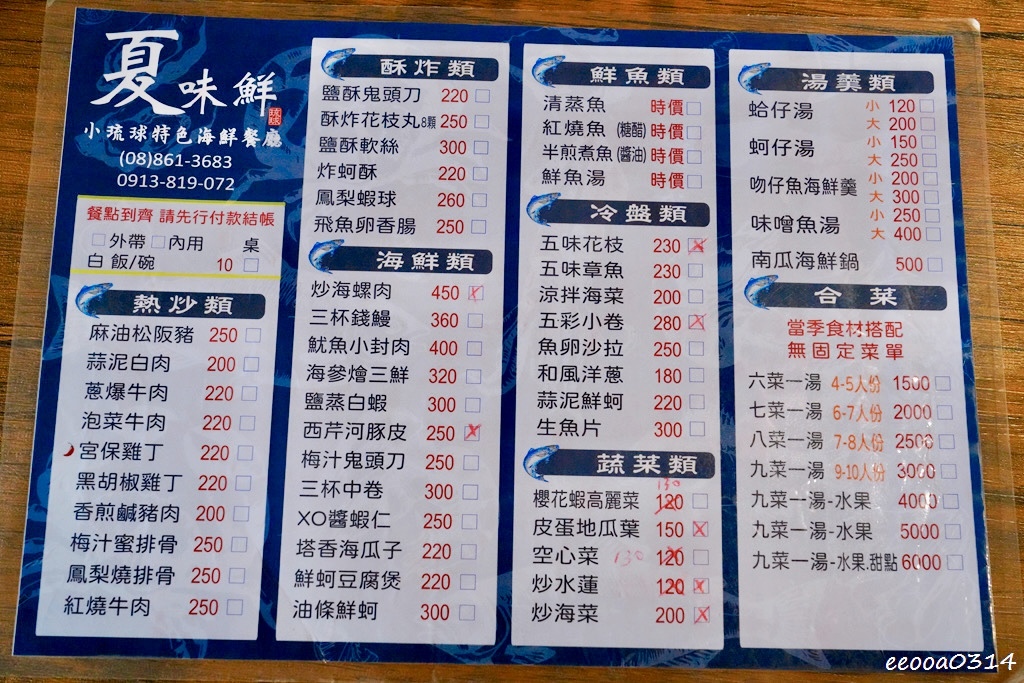 夏味鮮
琉球
小琉球特色海鮮餐廳
(08)861-3683
0913-819-072
餐點到齊 請先行付款結帳
□外帶□內用 桌
白 飯/碗 10 □
熱炒類
麻油松阪豬 250 □
蒜泥白肉 200 □
蔥爆牛肉 220 □
泡菜牛肉 220 □
宮保雞丁 220 □
黑胡椒雞丁 220 □
香煎鹹豬肉 200 □
梅汁蜜排骨 250 □
鳳梨燒排骨 250 □
紅燒牛肉 250 □
酥炸類
鹽酥鬼頭刀 220 □
酥炸花枝丸8顆 250 □
鹽酥軟絲 300 □
炸蚵酥 220 □
鳳梨蝦球 260 □
飛魚卵香腸 250 □
海鮮類
炒海螺肉 450 ☒
三杯錢鰻 360 □
魷魚小封肉 400 □
海參燴三鮮 320 □
鹽蒸白蝦 300 □
西芹河豚皮 250 ☒
梅汁鬼頭刀 250 □
三杯中卷 300 □
XO醬蝦仁 250 □
塔香海瓜子 220 □
鮮蚵豆腐煲 220 □
油條鮮蚵 300 □
鮮魚類
清蒸魚 時價□
紅燒魚 (糖醋) 時價□
半煎煮魚(醬油) 時價□
鮮魚湯 時價□
冷盤類
五味花枝 230 ☒
五味章魚 230 □
涼拌海菜 200 □
五彩小卷 280 ☒
魚卵沙拉 250 □
和風洋蔥 180 □
蒜泥鮮蚵 220 □
生魚片 300 □
蔬菜類
130
櫻花蝦高麗菜 120 □
皮蛋地瓜葉 150 ☒
空心菜 130 120 □
炒水蓮 120 ☒
炒海菜 200 ☒
湯羹類
蛤仔湯 小 120 □
大 200 □
蚵仔湯 小 150 □
大 250 □
吻仔魚海鮮羹 小 200 □
大 300 □
味噌魚湯 小 250 □
大 400 □
南瓜海鮮鍋 500 □
合菜
當季食材搭配
無固定菜單
六菜一湯 4-5人份 1500 □
七菜一湯 6-7人份 2000 □
八菜一湯 7-8人份 2500 □
九菜一湯 9-10人份 3000 □
九菜一湯-水果 4000 □
九菜一湯-水果 5000 □
九菜一湯-水果.甜點 6000 □
eeooa0314